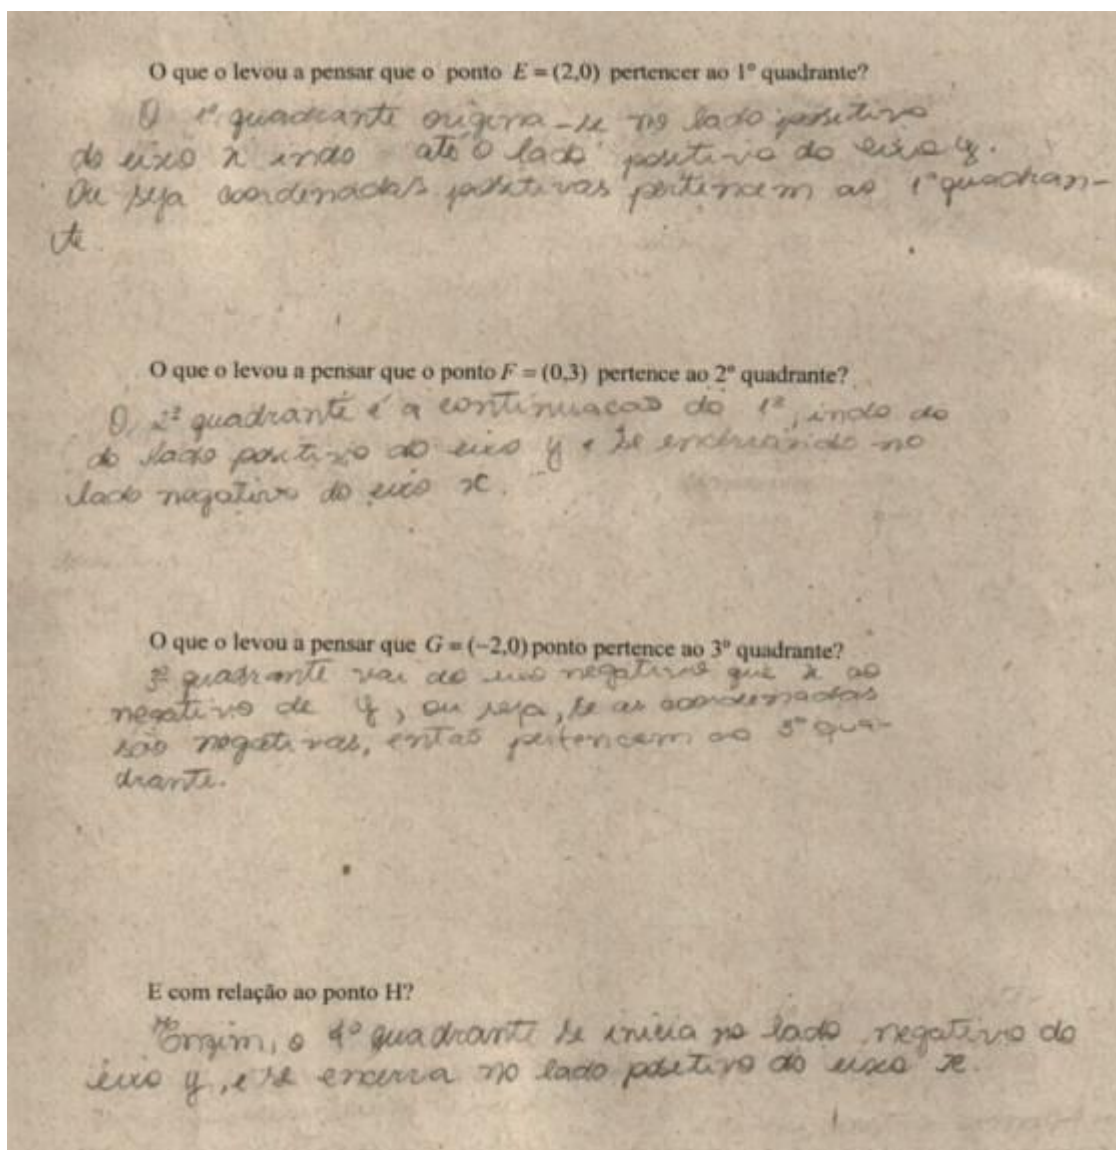 O que o levou a pensar que o ponto E = (2,0) pertencer ao 1º quadrante?
O 1º quadrante origina-se no lado positivo
do eixo x indo até o lado positivo do eixo y.
Ou seja coordenadas positivas pertencem ao 1º quadran-
te.
O que o levou a pensar que o ponto F = (0,3) pertence ao 2º quadrante?
O 2º quadrante é a continuacao do 1º, indo do
do lado positivo do eixo y e se encerrando no
lado negativo do eixo x.
O que o levou a pensar que G = (−2,0) ponto pertence ao 3º quadrante?
3º quadrante vai do eixo negativo que x ao
negativo de y, ou seja, se as coordenadas
são negativas, então pertencem ao 3º qua-
drante.
E com relação ao ponto H?
o 4º quadrante se inicia no lado negativo do
eixo y, e se encerra no lado positivo do eixo x.